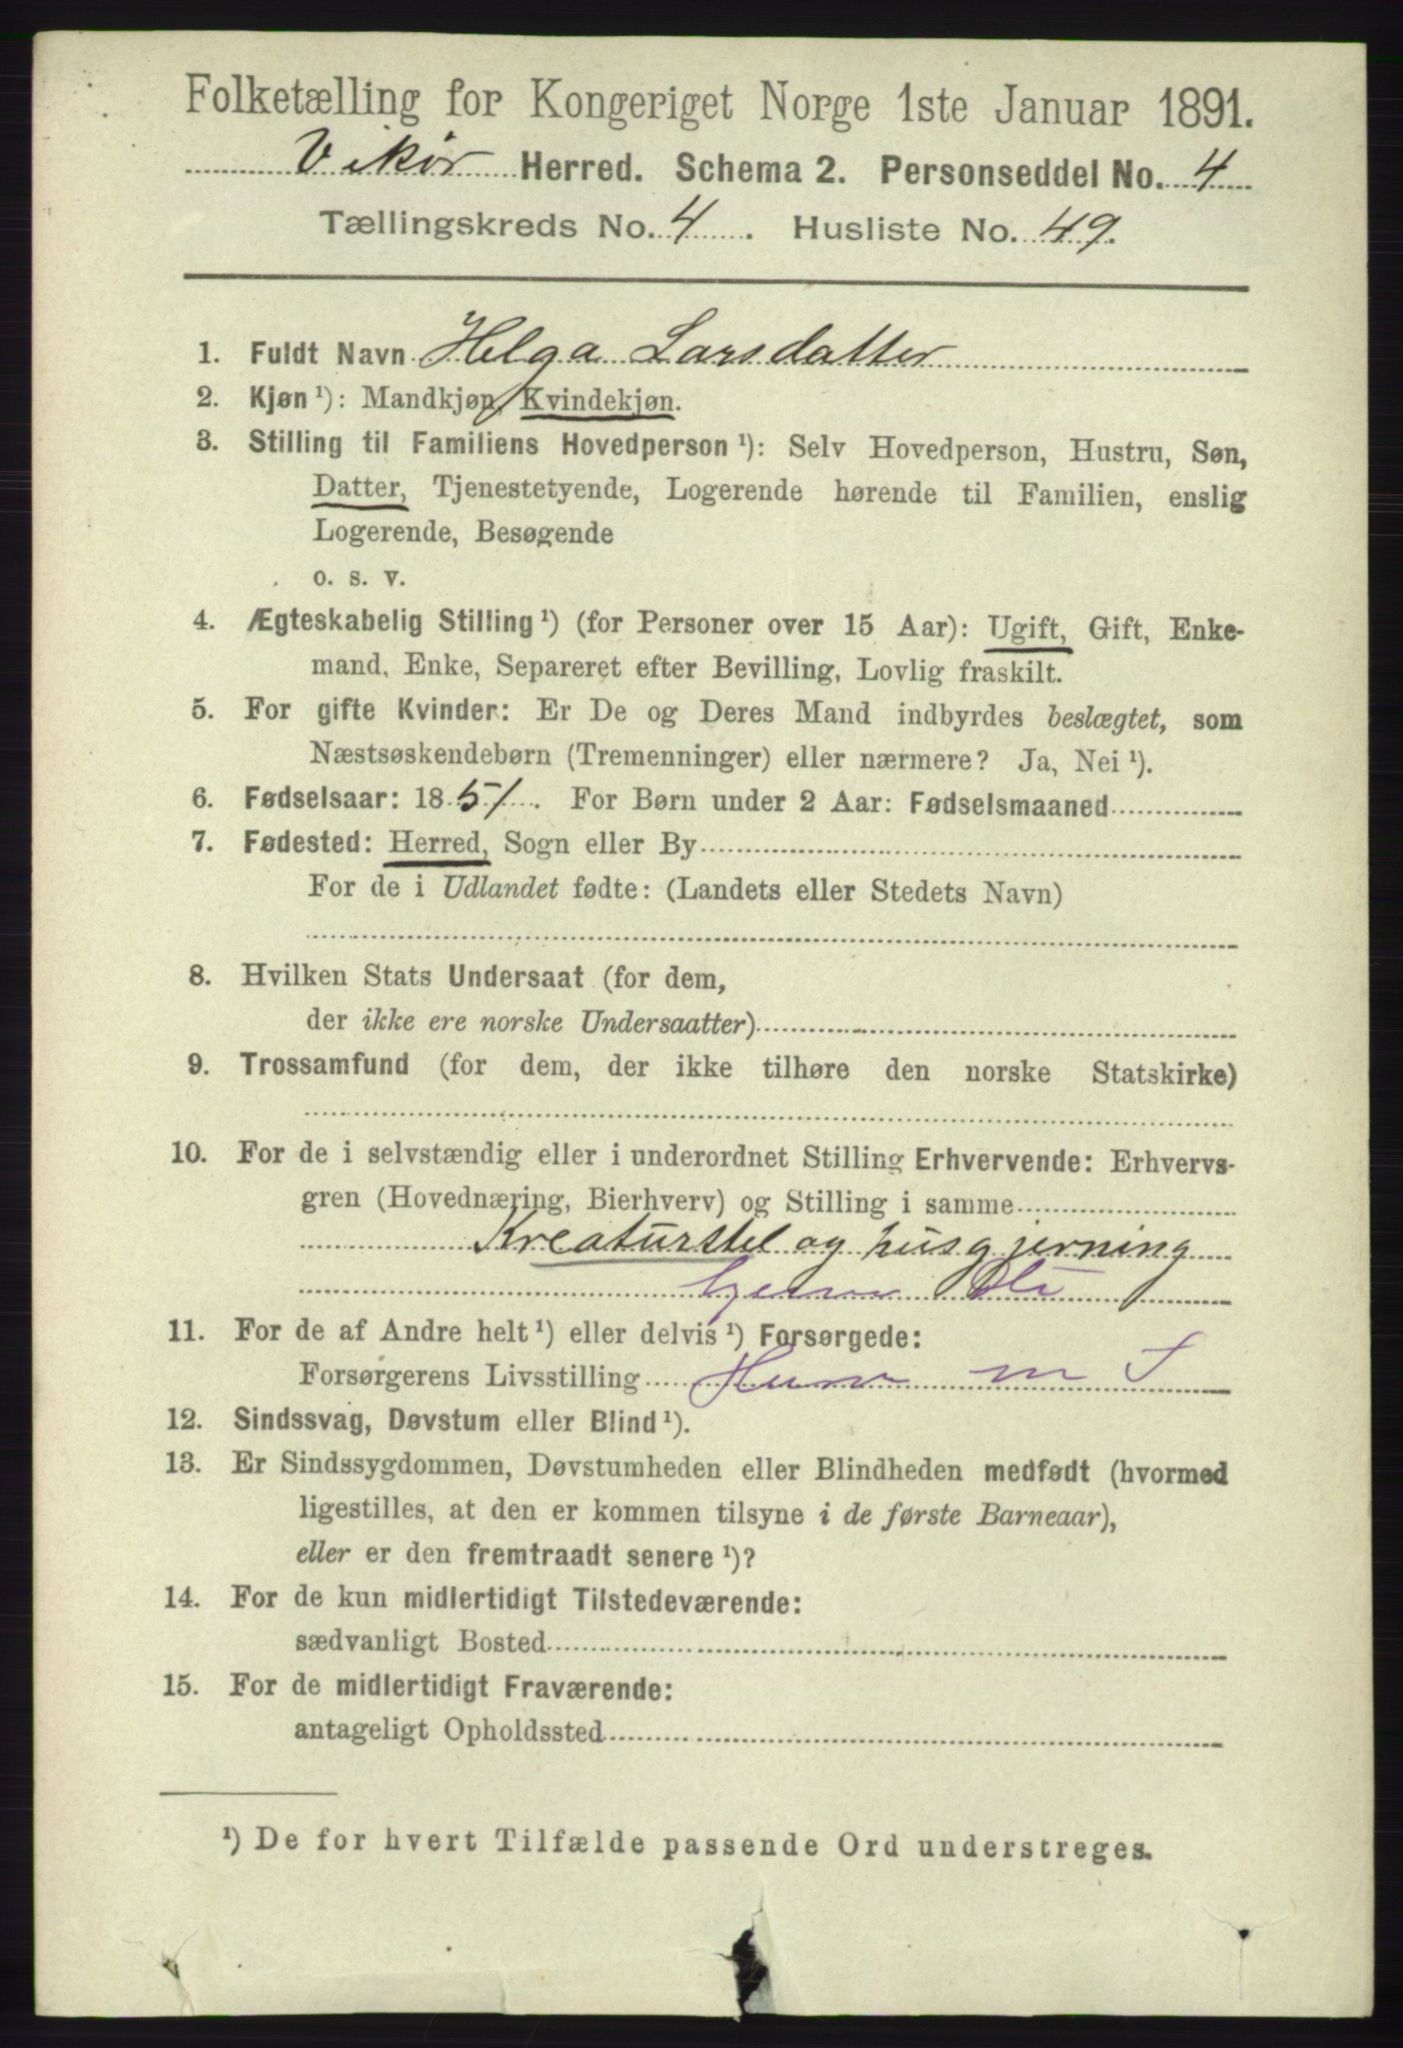 Folketælling for Kongeriget Norge 1ste Januar 1891.
Vikør Herred. Schema 2. Personseddel No. 4
Tællingskreds No. 4. Husliste No. 49.
1. Fuldt Navn Helga Larsdatter
2. Kjøn ¹): Mandkjøn, Kvindekjøn.
3. Stilling til Familiens Hovedperson ¹): Selv Hovedperson, Hustru, Søn,
Datter, Tjenestetyende, Logerende hørende til Familien, enslig
Logerende, Besøgende
o. s. v.
4. Ægteskabelig Stilling ¹) (for Personer over 15 Aar): Ugift, Gift, Enke-
mand, Enke, Separeret efter Bevilling, Lovlig fraskilt.
5. For gifte Kvinder: Er De og Deres Mand indbyrdes beslægtet, som
Næstsøskendebørn (Tremenninger) eller nærmere? Ja, Nei ¹).
6. Fødselsaar: 1851. For Børn under 2 Aar: Fødselsmaaned
7. Fødested: Herred, Sogn eller By
For de i Udlandet fødte: (Landets eller Stedets Navn)
8. Hvilken Stats Undersaat (for dem,
der ikke ere norske Undersaatter)
9. Trossamfund (for dem, der ikke tilhøre den norske Statskirke)
10. For de i selvstændig eller i underordnet Stilling Erhvervende: Erhvervs-
gren (Hovednæring, Bierhverv) og Stilling i samme
Kreaturstel og husgjerning
11. For de af Andre helt ¹) eller delvis ¹) Forsørgede:
Forsørgerens Livsstilling
12. Sindssvag, Døvstum eller Blind ¹).
13. Er Sindssygdommen, Døvstumheden eller Blindheden medfødt (hvormed
ligestilles, at den er kommen tilsyne i de første Barneaar),
eller er den fremtraadt senere ¹)?
14. For de kun midlertidigt Tilstedeværende:
sædvanligt Bosted
15. For de midlertidigt Fraværende:
antageligt Opholdssted
¹) De for hvert Tilfælde passende Ord understreges.